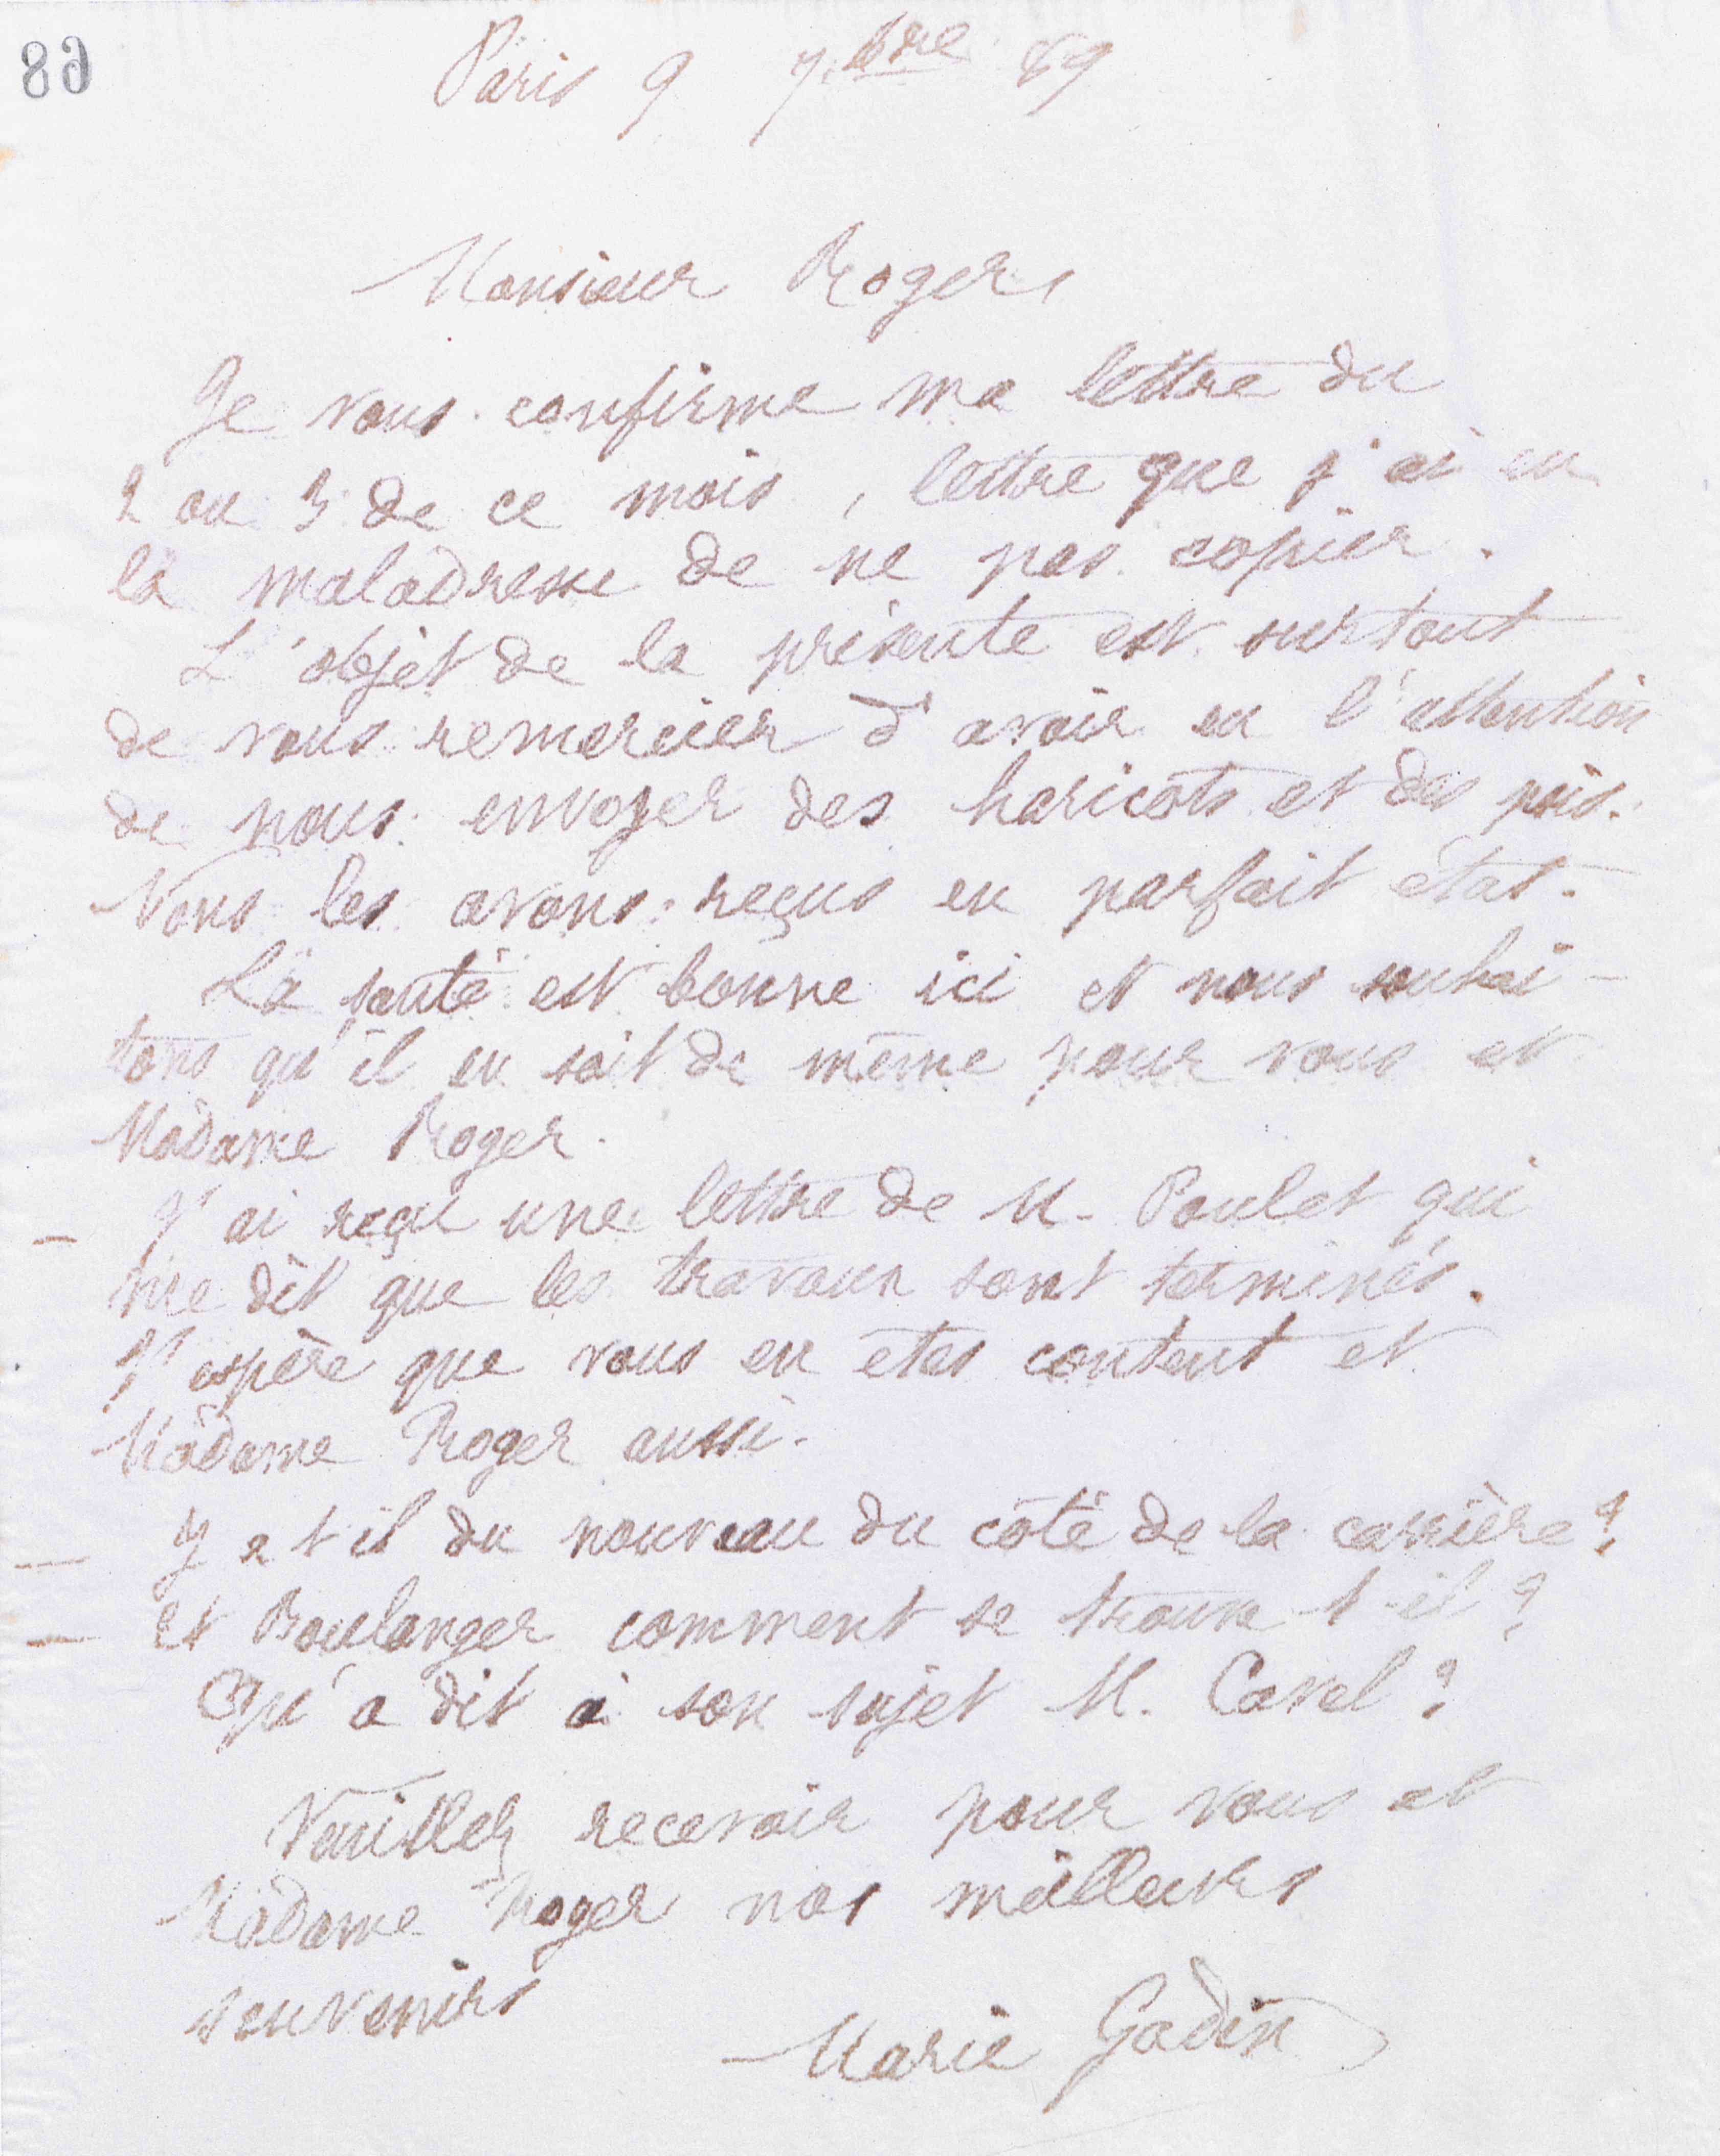 89
Paris 9 7.bre 89
Monsieur Roger,
Je vous confirme ma lettre du
2 ou 3 de ce mois, lettre que j'ai eu
la maladresse de ne pas copier.
L'objet de la présente est surtout
de vous remercier d'avoir eu l'attention
de nous envoyer des haricots et des pois.
Nous les avons reçus en parfait état.
La santé est bonne ici et nous souhai-
tons qu'il en soit de même pour vous et
Madame Roger.
— J'ai reçu une lettre de M. Poulet qui
me dit que les travaux sont terminés.
J'espère que vous en êtes content et
Madame Roger aussi.
— Y a t il du nouveau du côté de la carrière?
— Et Boulanger comment se trouve t-il?
Qu'a dit à son sujet M. Carel?
Veuillez recevoir pour vous et
Madame Roger nos meilleurs
souvenirs
Marie Godin